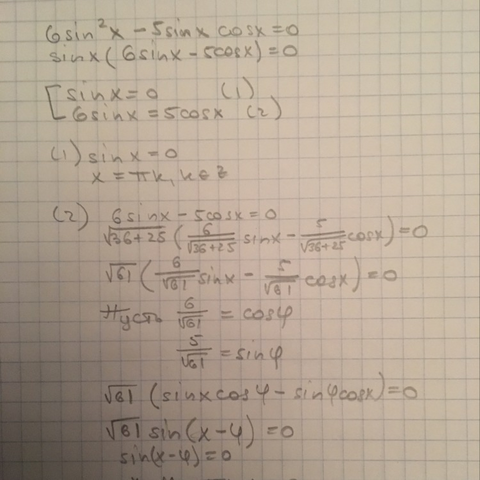 6sin²x - 5sinx cosx = 0
sinx(6sinx - 5cosx) = 0
[ sinx = 0 (1)
6sinx = 5cosx (2)
(1) sinx = 0
x = πk, k∈z
(2) 6sinx - 5cosx = 0
√36+25 (6/√36+25 sinx - 5/√36+25 cosx) = 0
√61 (6/√61 sinx - 5/√61 cosx) = 0
Пусть 6/√61 = cosφ
5/√61 = sinφ
√61 (sinx cosφ - sinφ cosx) = 0
√61 sin(x - φ) = 0
sin(x - φ) = 0